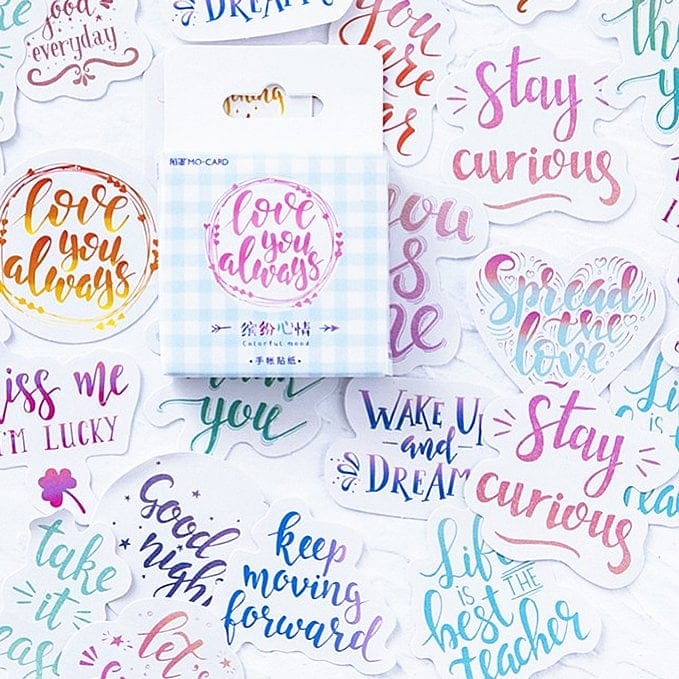 good
everyday
you
are
Stay
curious
陌墨MO·CARD
love
you
always
love
you
always
缤纷心情
Colorful mood
·手帐贴纸·
you
Spread
the
love
kiss me
I'M LUCKY
you
WAKE UP
and
DREAM
Stay
curious
Good
night
keep
moving
forward
take
it
Life
IS THE
best
teacher
let's